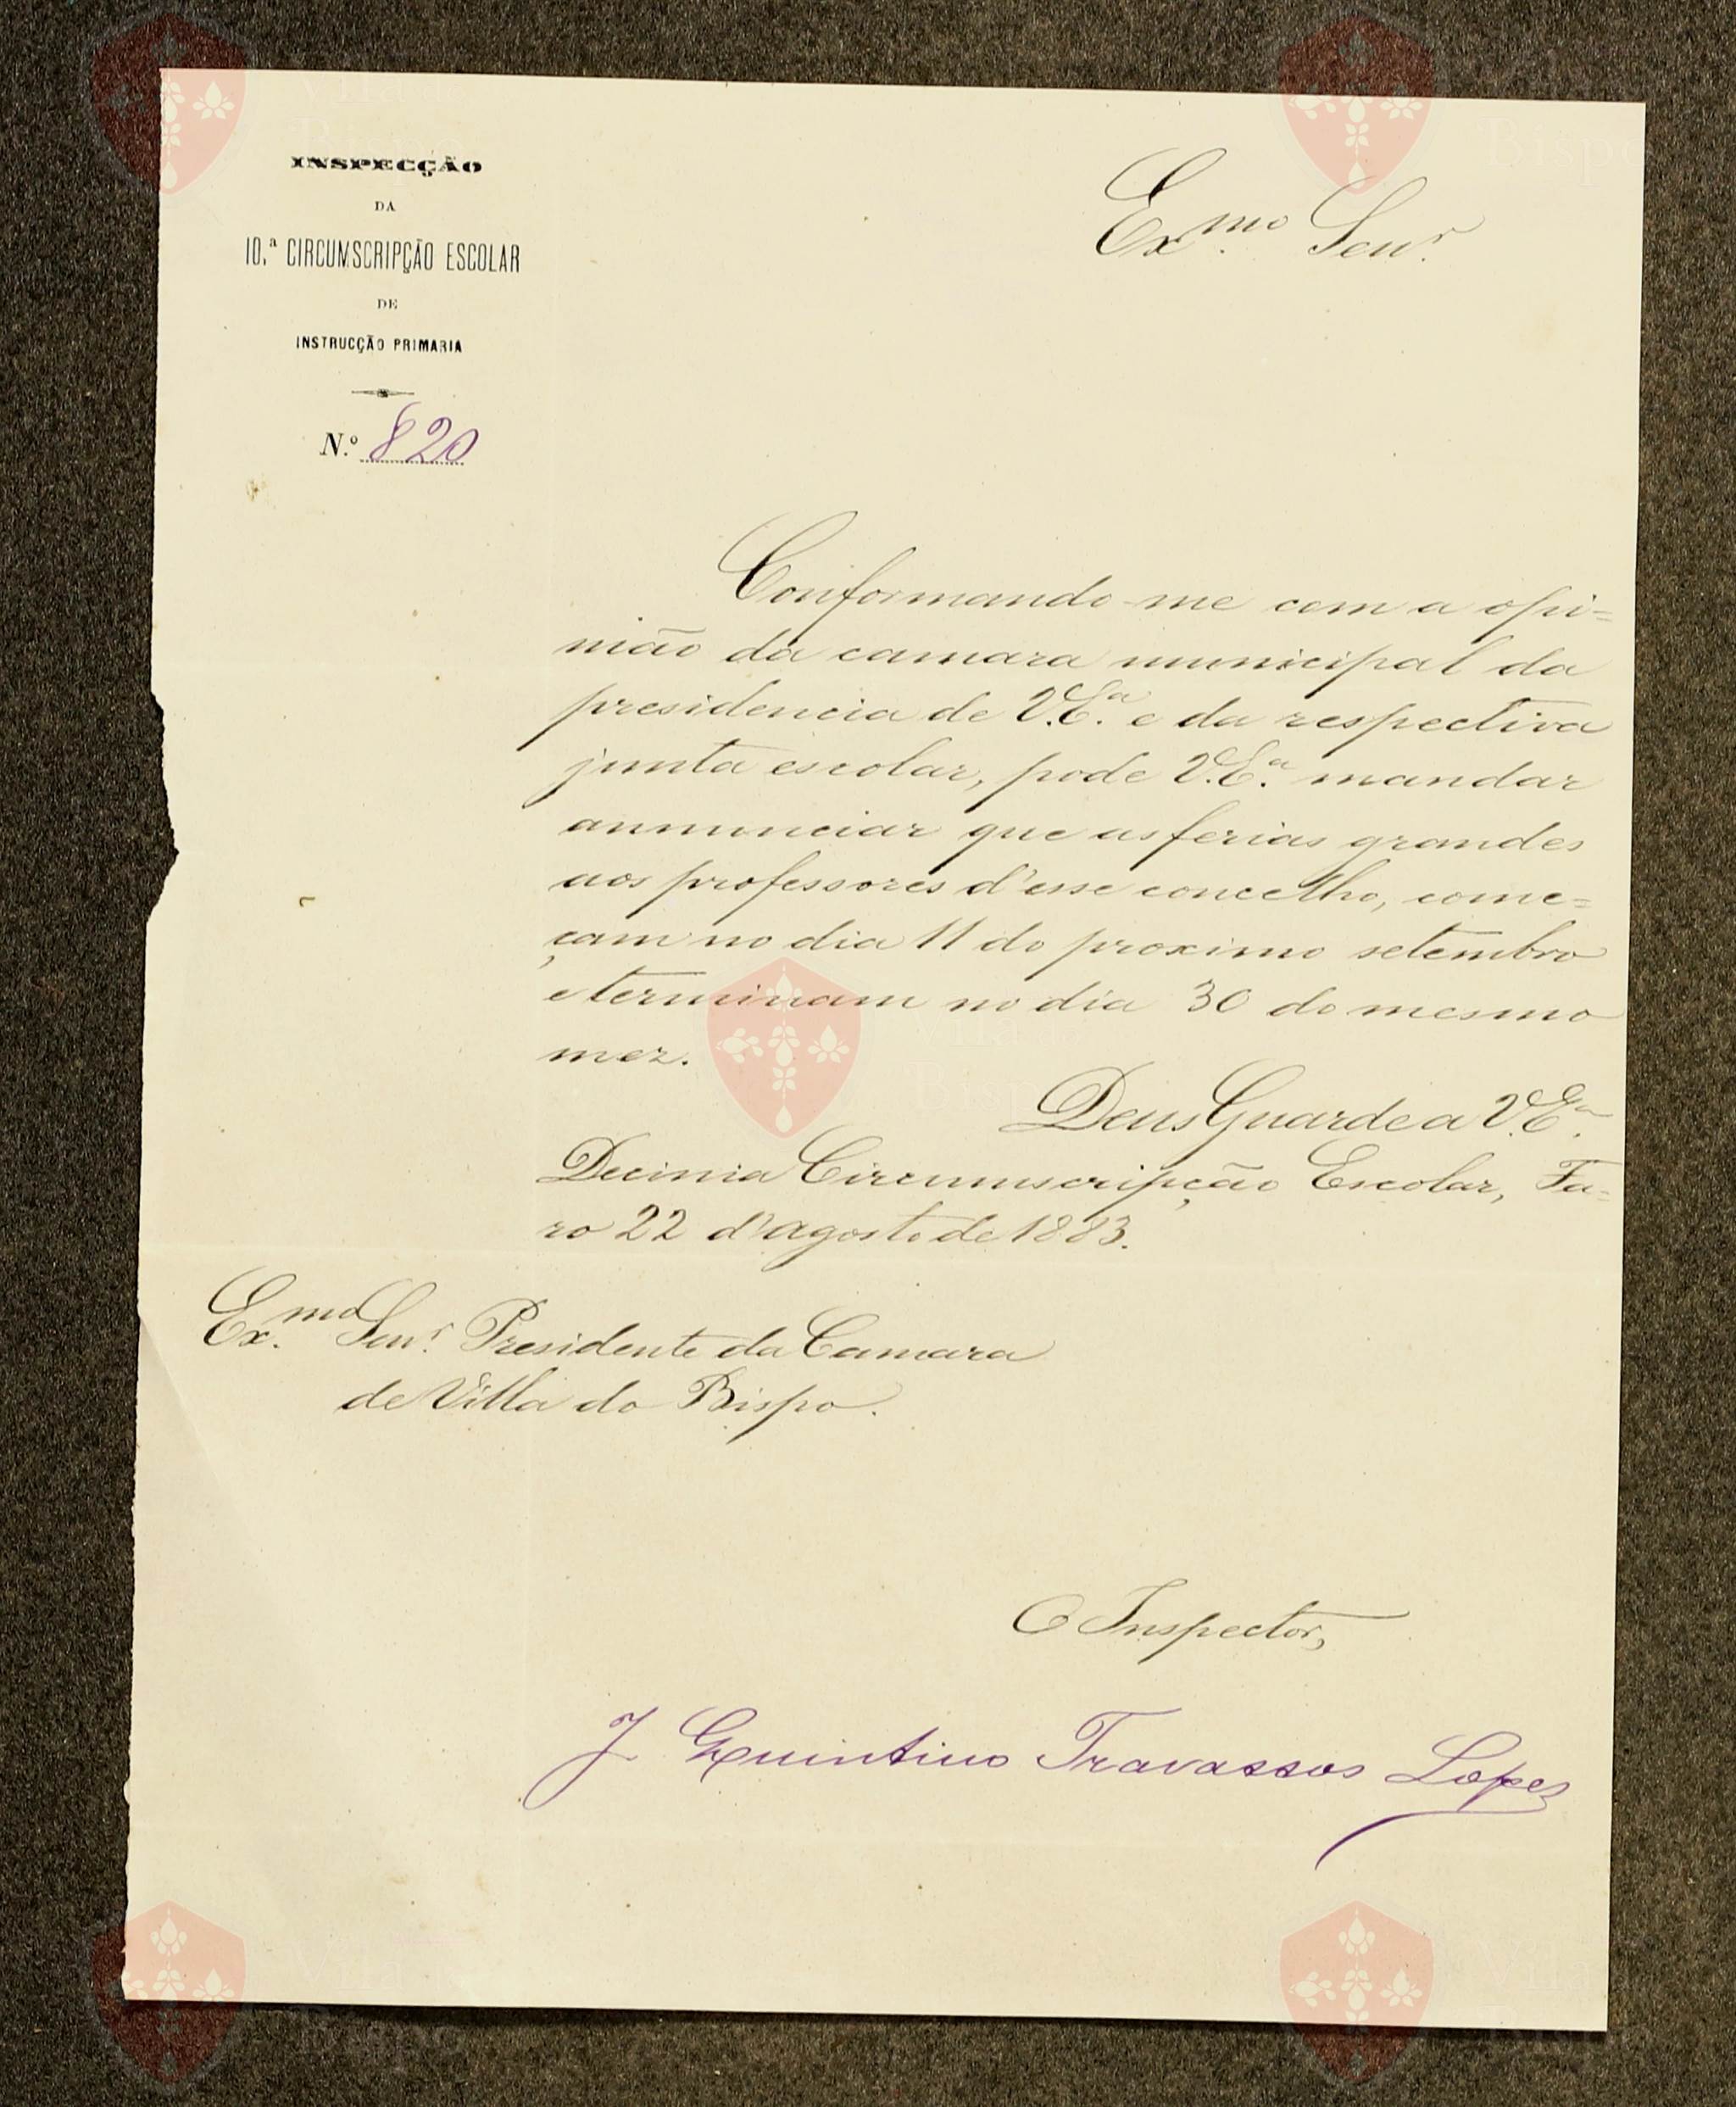 INSPECÇÃO
DA
10.ª CIRCUMSCRIPÇÃO ESCOLAR
DE
INSTRUCÇÃO PRIMARIA
N.º 820
Ex.mo Senr.
Conformando-me com a opi=
nião da camara municipal da
presidencia de V.E.ª e da respectiva
junta escolar, pode V.E.ª mandar
annunciar que as ferias grandes
aos professores d'esse concelho, come=
çam no dia 11 do proximo setembro
e terminam no dia 30 do mesmo
mez.
Deus Guarde a V.E.ª
Decima Circumscripção Escolar, Fa-
ro 22 d'agosto de 1883.
Ex.mo Senr. Presidente da Camara
de Villa do Bispo.
O Inspector,
J. Quintino Travassos Lopes